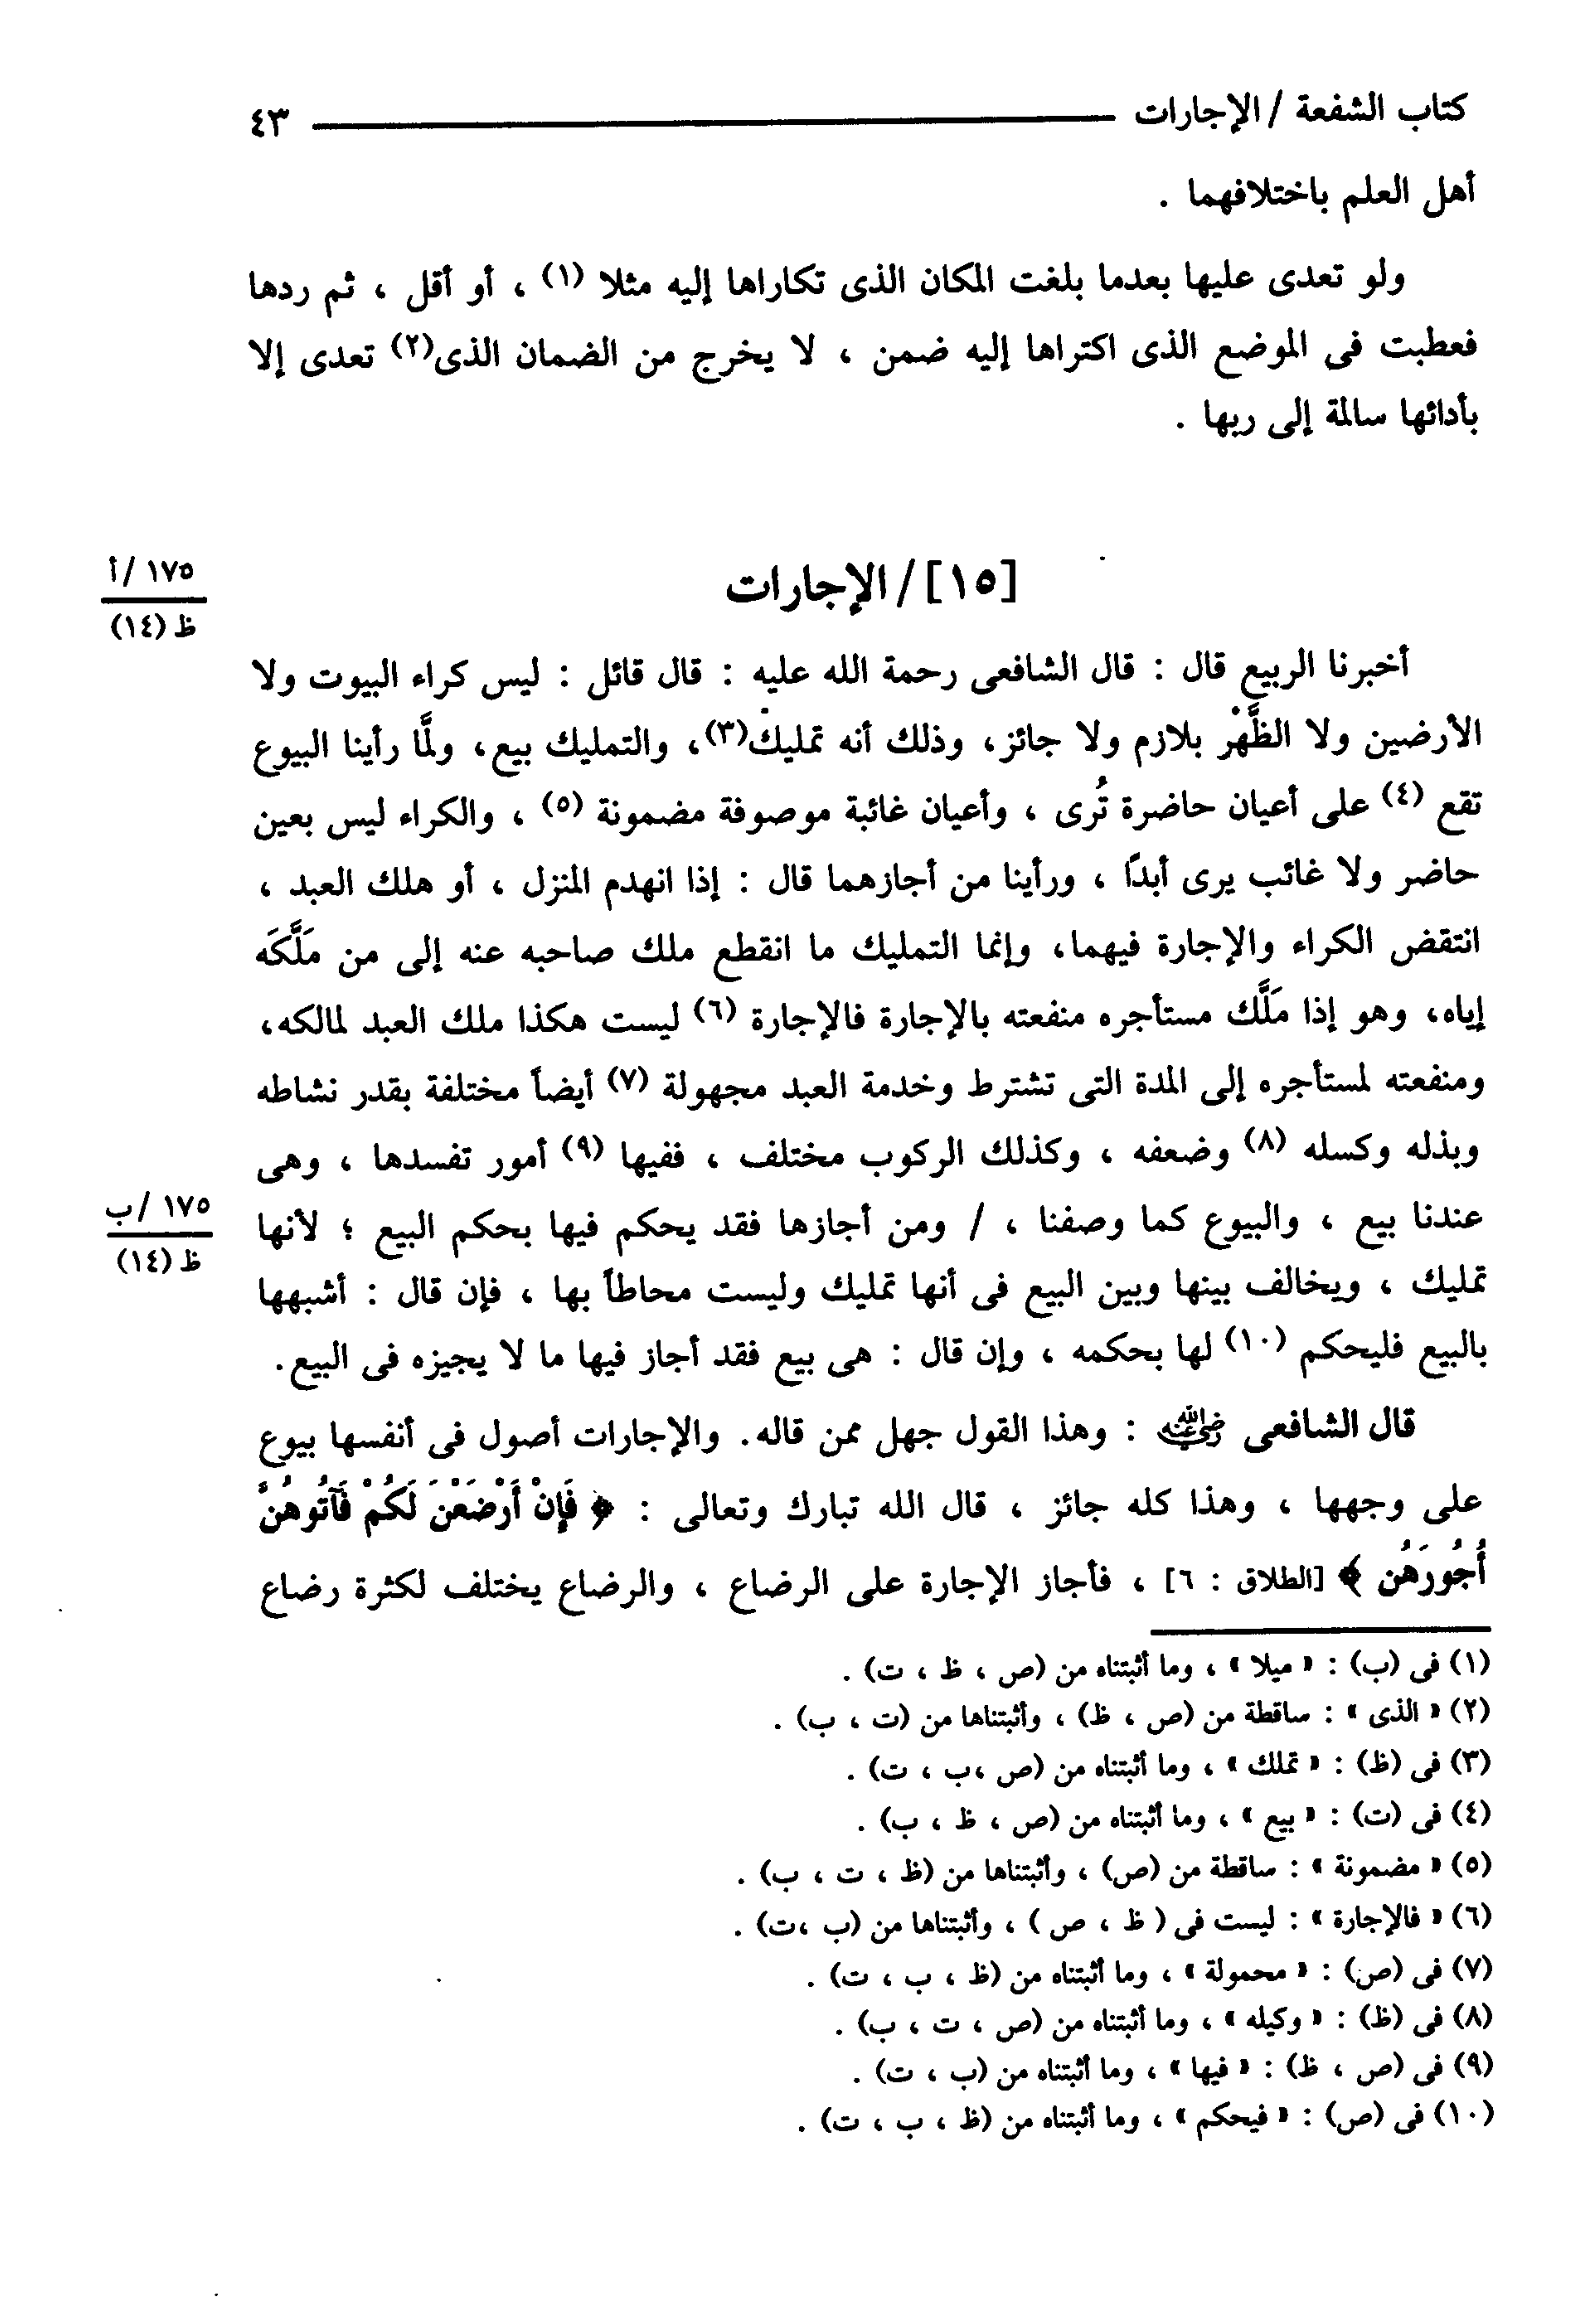 كتاب الشفعة / الإجارات ٤٣
أهل العلم باختلافهما .
ولو تعدى عليها بعدما بلغت المكان الذى تكاراها إليه مثلا (١) ، أو أقل ، ثم ردها
فعطبت فى الموضع الذى اكتراها إليه ضمن ، لا يخرج من الضمان الذى(٢) تعدى إلا
بأدائها سالمة إلى ربها .
[١٥] / الإجارات
١٧٥ /أ
ظ (١٤)
أخبرنا الربيع قال : قال الشافعى رحمة الله عليه : قال قائل : ليس كراء البيوت ولا
الأرضين ولا الظَّهْر بلازم ولا جائز، وذلك أنه تمليك(٣)، والتمليك بيع، ولمَّا رأينا البيوع
تقع (٤) على أعيان حاضرة تُرى ، وأعيان غائبة موصوفة مضمونة (٥) ، والكراء ليس بعين
حاضر ولا غائب يرى أبدًا ، ورأينا من أجازهما قال : إذا انهدم المنزل ، أو هلك العبد ،
انتقض الكراء والإجارة فيهما، وإنما التمليك ما انقطع ملك صاحبه عنه إلى من مَلَّكَه
إياه، وهو إذا مَلَّك مستأجره منفعته بالإجارة فالإجارة (٦) ليست هكذا ملك العبد لمالكه،
ومنفعته لمستأجره إلى المدة التى تشترط وخدمة العبد مجهولة (٧) أيضاً مختلفة بقدر نشاطه
وبذله وكسله (٨) وضعفه ، وكذلك الركوب مختلف ، ففيها (٩) أمور تفسدها ، وهى
عندنا بيع ، والبيوع كما وصفنا ، / ومن أجازها فقد يحكم فيها بحكم البيع ؛ لأنها
١٧٥ /ب
ظ (١٤)
تمليك ، ويخالف بينها وبين البيع فى أنها تمليك وليست محاطاً بها ، فإن قال : أشبهها
بالبيع فليحكم (١٠) لها بحكمه ، وإن قال : هى بيع فقد أجاز فيها ما لا يجيزه فى البيع.
قال الشافعى رضي الله عنه : وهذا القول جهل ممن قاله. والإجارات أصول فى أنفسها بيوع
على وجهها ، وهذا كله جائز ، قال الله تبارك وتعالى : ﴿ فَإِنْ أَرْضَعْنَ لَكُمْ فَآتُوهُنَّ
أُجُورَهُن ﴾ [الطلاق : ٦] ، فأجاز الإجارة على الرضاع ، والرضاع يختلف لكثرة رضاع
(١) فى (ب) : « ميلا » ، وما أثبتناه من (ص ، ظ ، ت) .
(٢) « الذى » : ساقطة من (ص ، ظ) ، وأثبتناها من (ت ، ب) .
(٣) فى (ظ) : « تملك » ، وما أثبتناه من (ص ،ب ، ت) .
(٤) فى (ت) : « بيع » ، وما أثبتناه من (ص ، ظ ، ب) .
(٥) « مضمونة » : ساقطة من (ص) ، وأثبتناها من (ظ ، ت ، ب) .
(٦) « فالإجارة » : ليست فى ( ظ ، ص ) ، وأثبتناها من (ب ،ت) .
(٧) فى (ص) : « محمولة » ، وما أثبتناه من (ظ ، ب ، ت) .
(٨) فى (ظ) : « وكيله » ، وما أثبتناه من (ص ، ت ، ب) .
(٩) فى (ص ، ظ) : « فيها » ، وما أثبتناه من (ب ، ت) .
(١٠) فى (ص) : « فيحكم » ، وما أثبتناه من (ظ ، ب ، ت) .